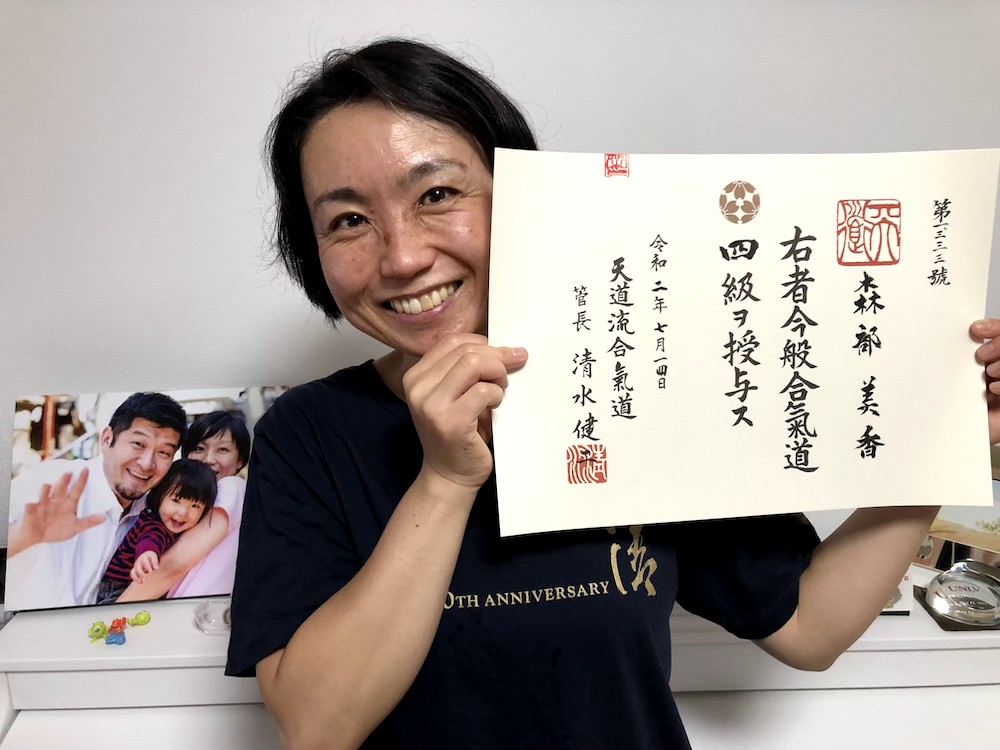 第一、三三三號
森部 美香
右者今般合氣道
四級ヲ授与ス
令和二年七月一四日
天道流合氣道
管長 清水健二
天道
0TH ANNIVERSARY
UNLV